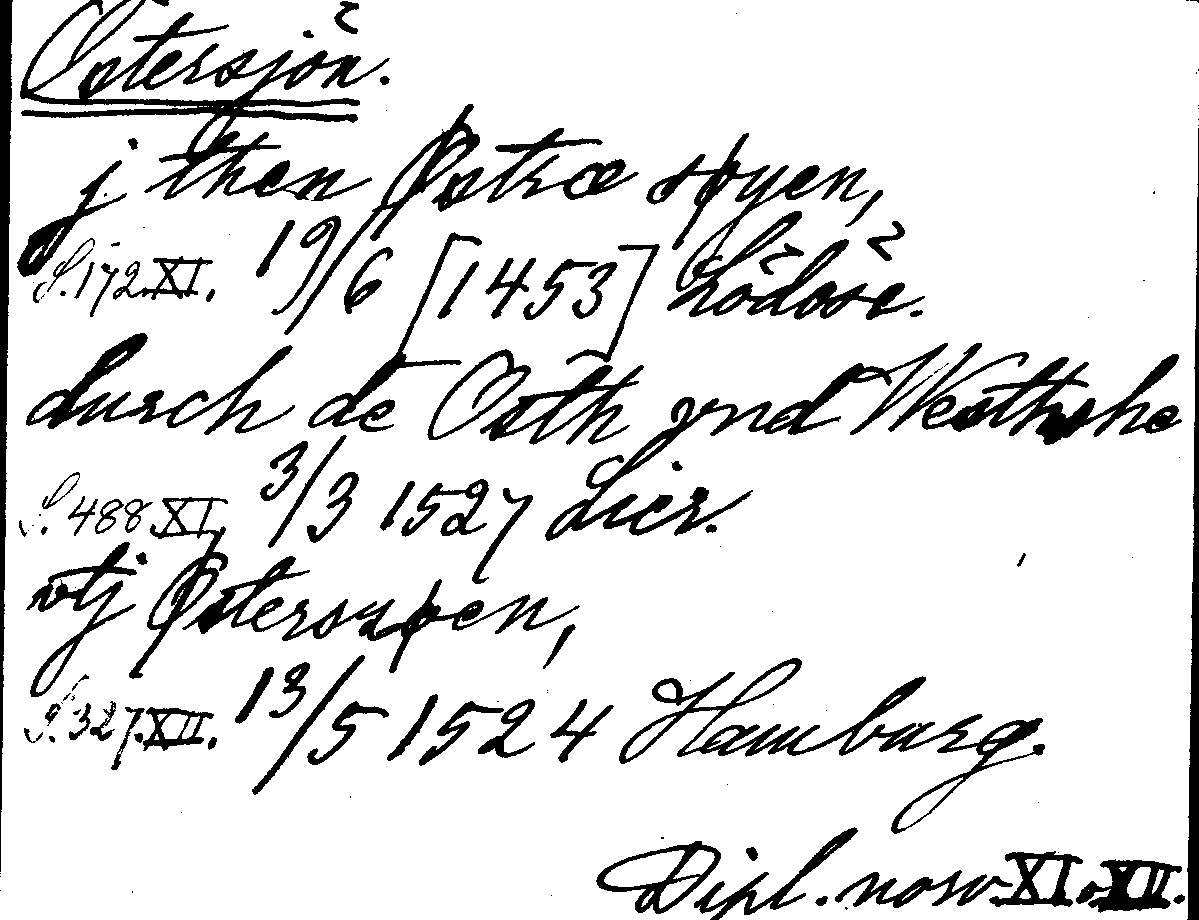 Östersjön.
j then Østræ søyen,
S. 172. XI. 19/6 [1453] Lödöse.
durch de Osth ynd Westhshe
S. 488 XI, 3/3 1527 Lier.
vtj Østersyøen,
S. 327. XII. 13/5 1524 Hamburg.
Dipl. norv. XI. XII.